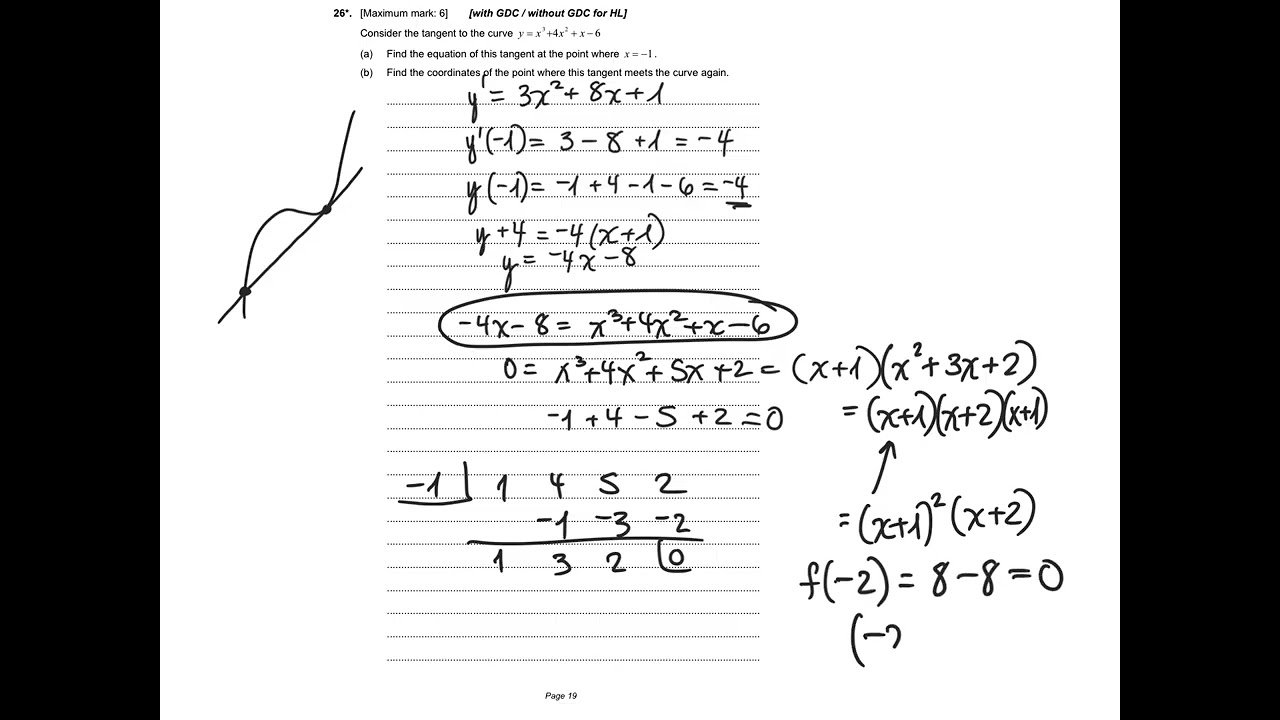 26*. [Maximum mark: 6] [with GDC / without GDC for HL]
Consider the tangent to the curve y = x³+4x² + x − 6
(a) Find the equation of this tangent at the point where x = −1 .
(b) Find the coordinates of the point where this tangent meets the curve again.
y' = 3x² + 8x + 1
y'(−1) = 3 − 8 + 1 = −4
y(−1) = −1 + 4 − 1 − 6 = −4
y + 4 = −4(x+1)
y = −4x − 8
−4x − 8 = x³ + 4x² + x − 6
0 = x³ + 4x² + 5x + 2 = (x+1)(x² + 3x + 2)
−1 + 4 − 5 + 2 = 0
= (x+1)(x+2)(x+1)
−1 1 4 5 2
−1 −3 −2
1 3 2 0
= (x+1)²(x+2)
f(−2) = 8 − 8 = 0
(−2
Page 19